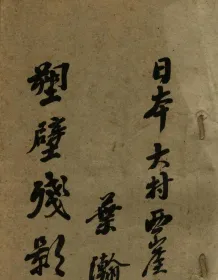 日本大村西崖
塑壁殘影
葉瀚